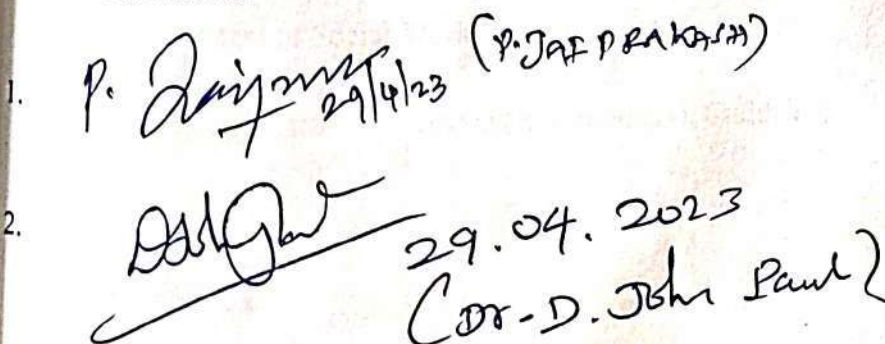 1. P. 29/4/23 (P. JAI PRAKASH)
2. 29.04.2023
(Dr. D. John Paul)